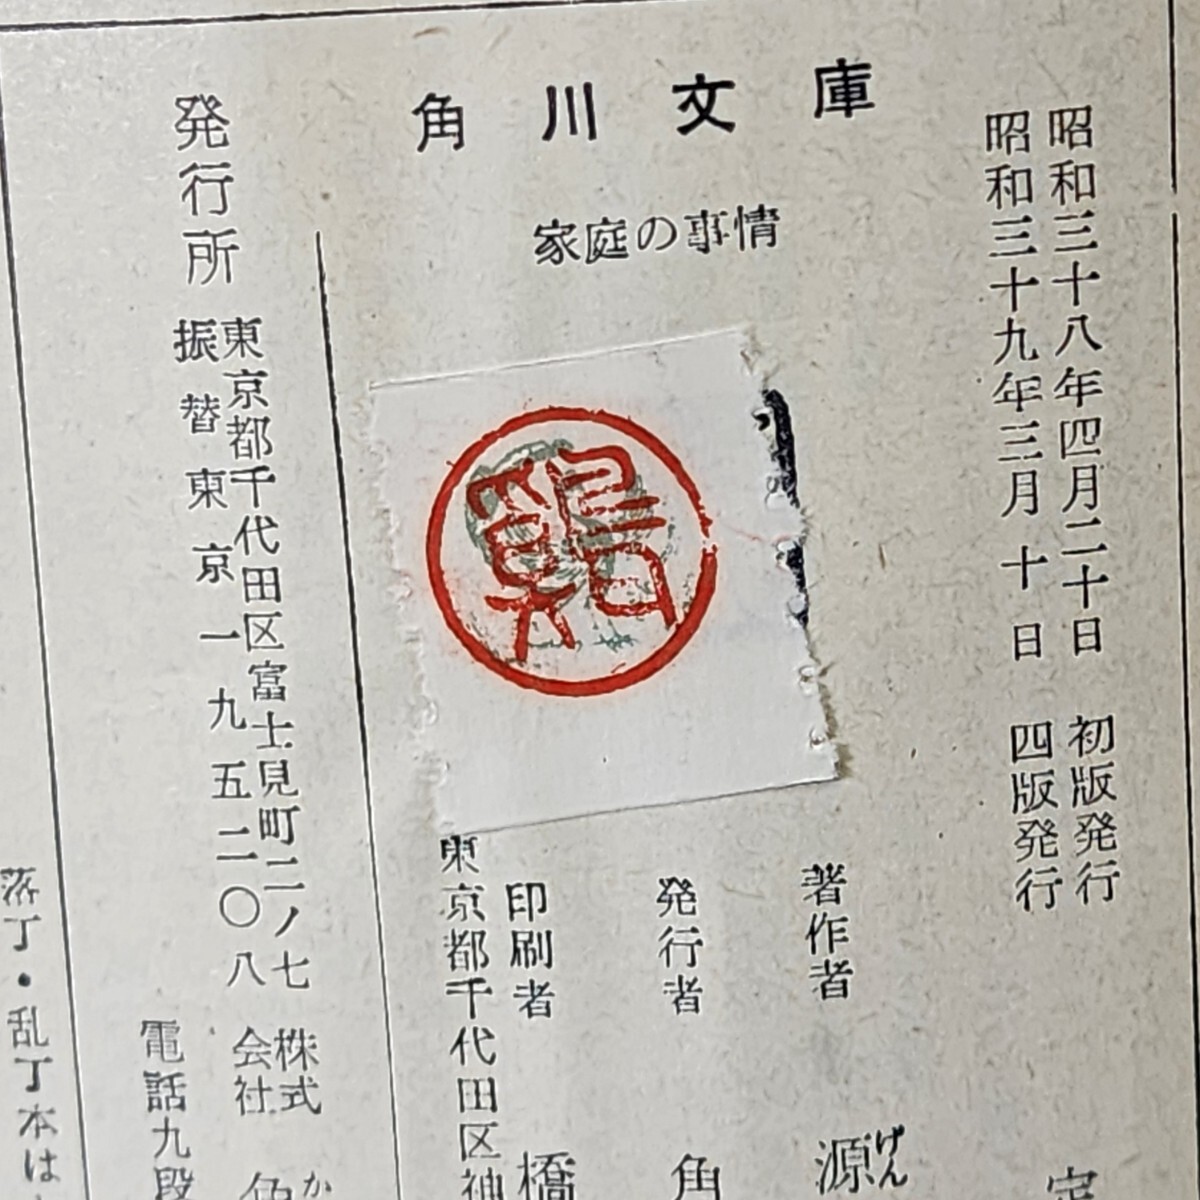 角川文庫
家庭の事情
昭和三十八年四月二十日 初版発行
昭和三十九年三月十日 四版発行
著作者 源
げん
発行者 角
印刷者 橋
東京都千代田区神
発行所
東京都千代田区富士見町二ノ七
振替東京一九五二〇八
株式
会社
角
か
電話九段
落丁・乱丁本は